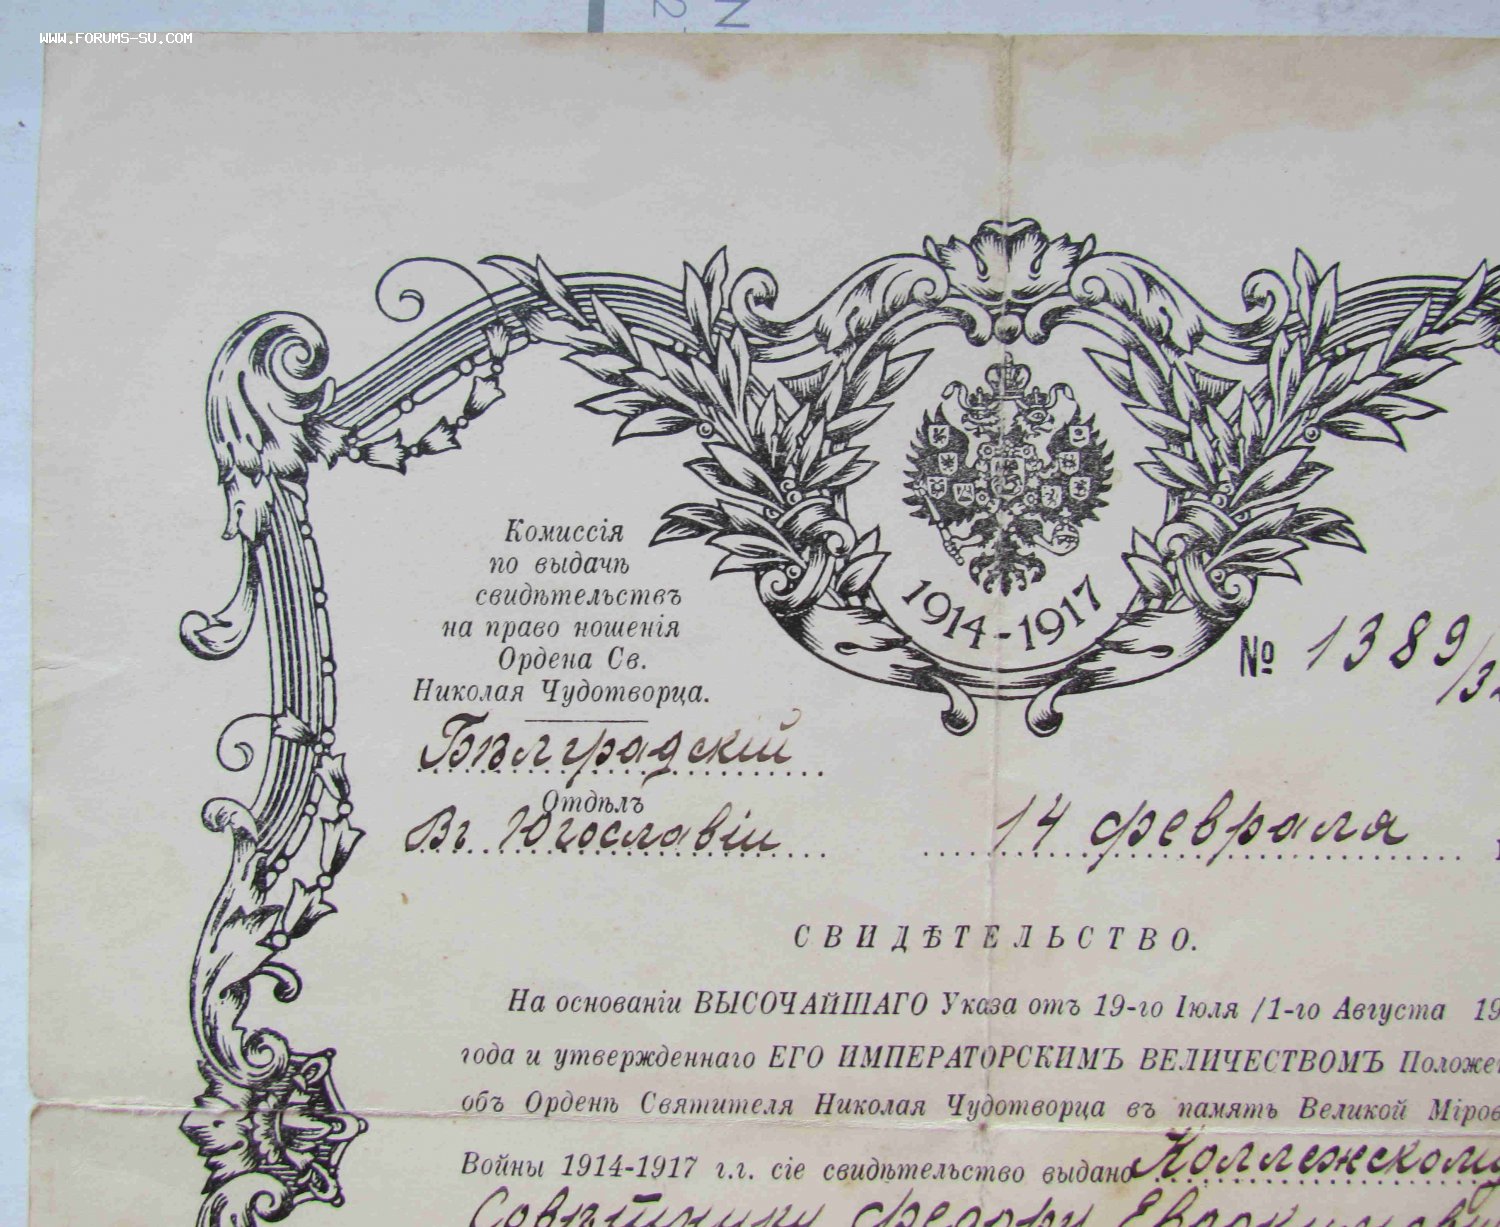 WWW.FORUMS-SU.COM
1914-1917
Комиссія
по выдачѣ
свидѣтельствъ
на право ношенія
Ордена Св.
Николая Чудотворца.
№ 1389/
Бѣлградскій
Отдѣлъ
Въ Югославіи
14 февраля
СВИДѢТЕЛЬСТВО.
На основаніи ВЫСОЧАЙШАГО Указа отъ 19-го Іюля /1-го Августа 19
года и утвержденнаго ЕГО ИМПЕРАТОРСКИМЪ ВЕЛИЧЕСТВОМЪ Положе
объ Орденѣ Святителя Николая Чудотворца въ память Великой Міров
Войны 1914-1917 г.г. сіе свидѣтельство выдано Коллежскому
Совѣтнику Федору